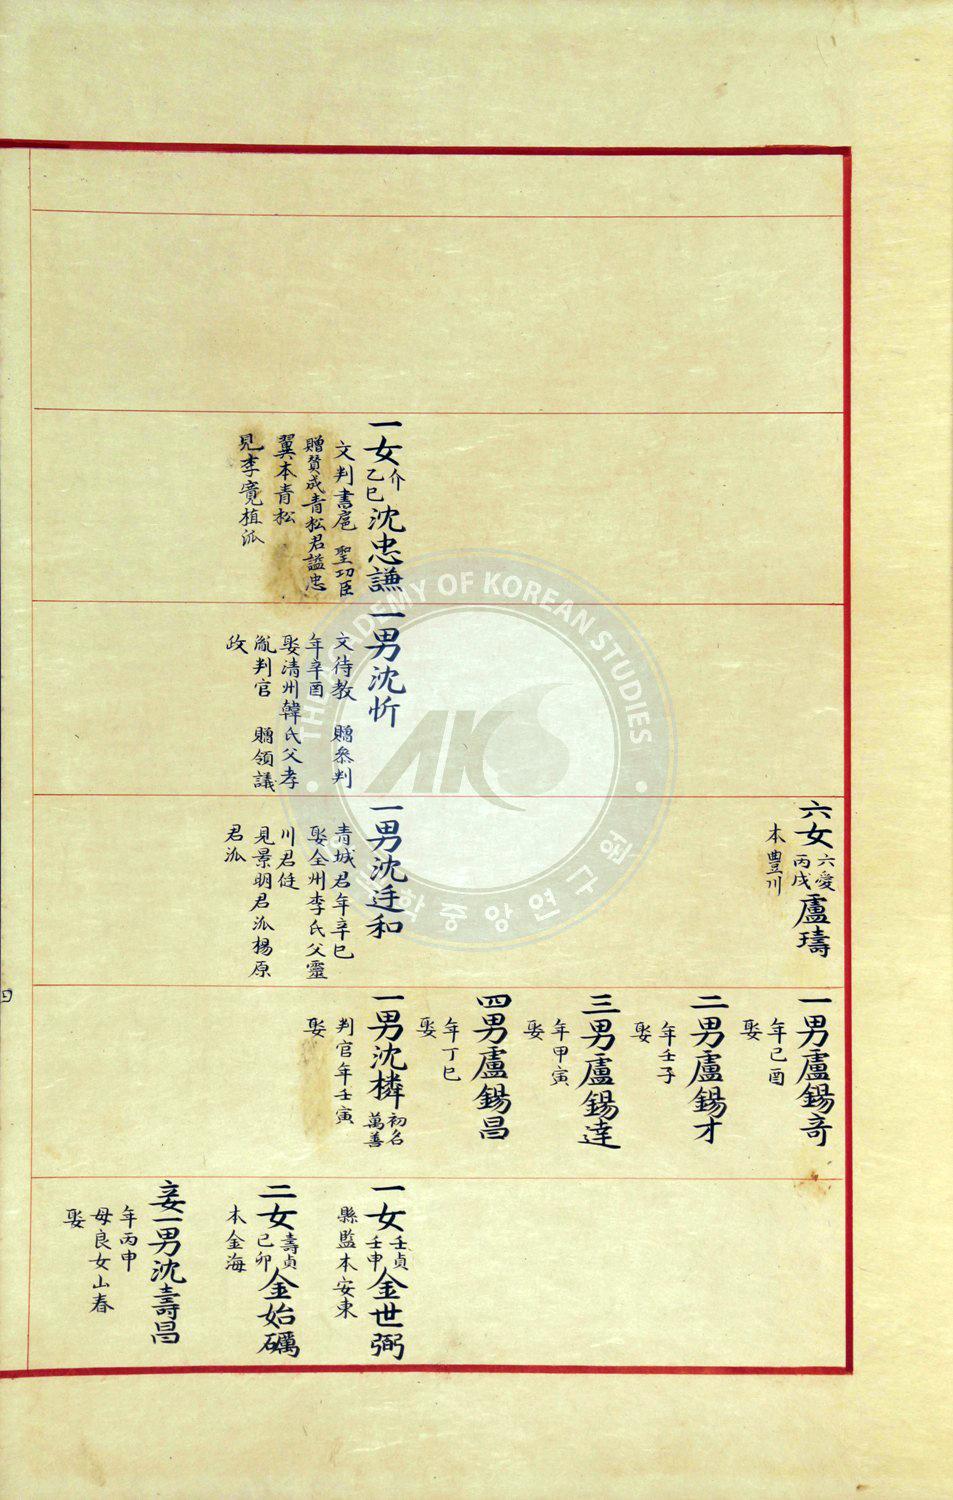 一女 介 乙巳 沈忠謙
文判書扈 聖功臣
贈贊成青松君謚忠
翼本青松
見李寬植派
一男沈忻
文待教 贈參判
年辛酉
娶清州韓氏父孝
胤判官 贈領議
政
六女 六愛 丙戌 盧璹
本豊川
一男沈廷和
青城君年辛巳
娶全州李氏父靈
川君侹
見景明君派楊原
君派
一男盧錫奇
年己酉
娶
二男盧錫才
年壬子
娶
三男盧錫達
年甲寅
娶
四男盧錫昌
年丁巳
娶
一男沈橉 初名 萬善
判官年壬寅
娶
一女 壬貞 壬申 金世弼
縣監本安東
二女 壽貞 己卯 金始礪
本金海
妾一男沈壽昌
年丙申
母良女山春
娶
四
THE ACADEMY OF KOREAN STUDIES
AKS
학중앙연구원